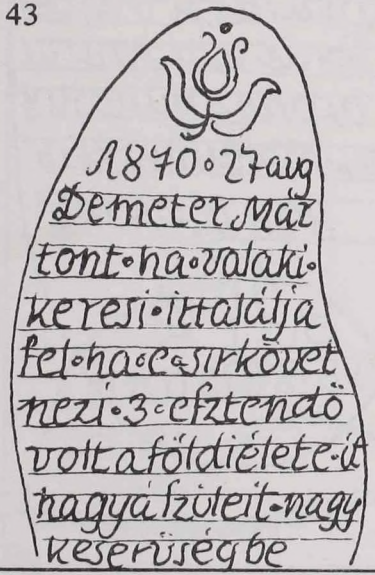 43
1870·27 aug
Demeter Már
tont·ha·valaki·
keresi·ittalálja
fel·ha·e·sirkövet
nezi·3·efztendö
volt a földiélete·it
hagyá fzüleit·nagy
keserüségbe